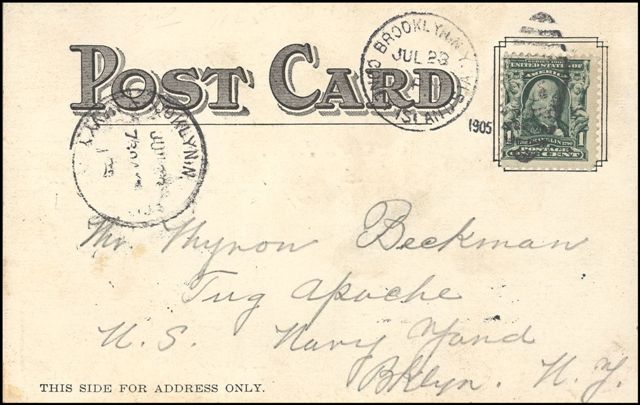 POST CARD
BROOKLYN, N.Y.
JUL 23
CONEY ISLAND STA.
1905
SERIES 1902
UNITED STATES OF AMERICA
FRANKLIN
POSTAGE
1 ONE CENT 1
BROOKLYN, N.Y.
Mr. Myron Beckman
Tug Apache
U. S. Navy Yard
Bklyn. N. Y.
THIS SIDE FOR ADDRESS ONLY.